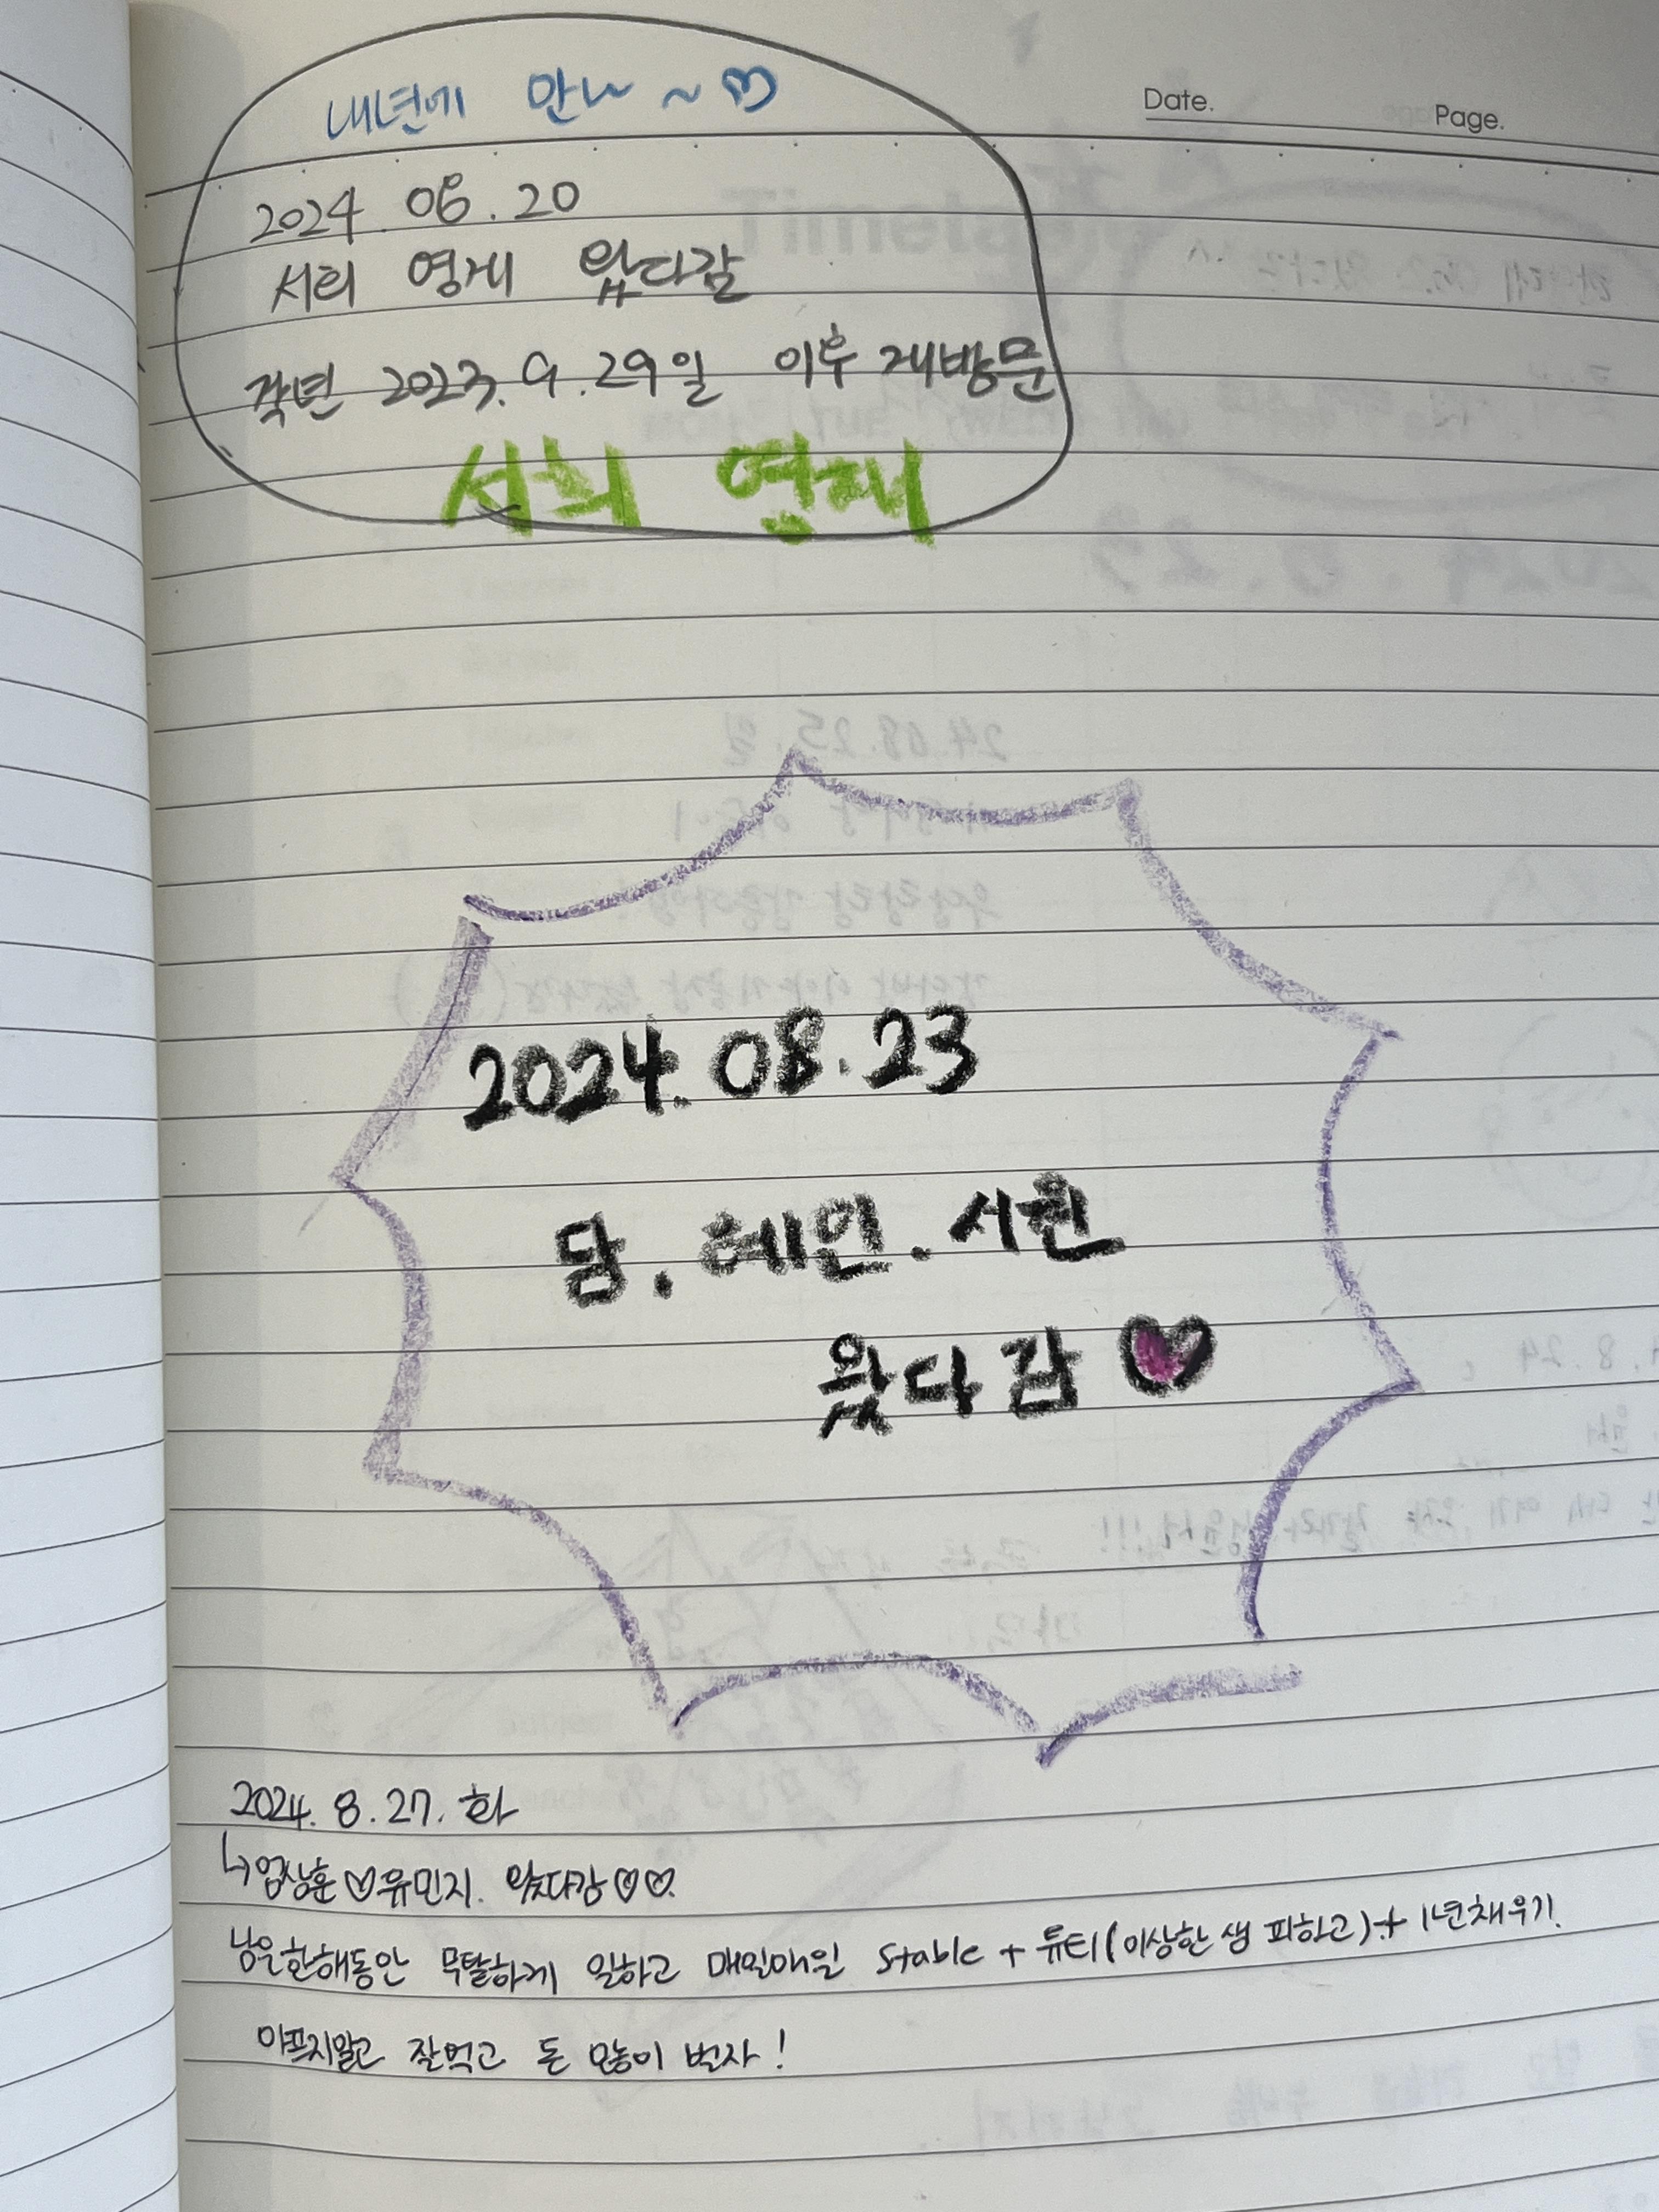 Date. Page.
내년에 만나 ~♡
2024. 08. 20
서희 영재 왔다감
작년 2023. 9. 29일 이후 재방문
서희 영재
2024. 08. 23
담. 혜인. 서원
왔다감 ♡
2024. 8. 27. 화
↳엄상훈♡유민지. 왔다감♡♡.
남은한해동안 무탈하게 일하고 매일매일 stable + 듀티(이상한 샘 피하고) + 1년채우기.
아프지말고 잘먹고 돈 많이 벌자!